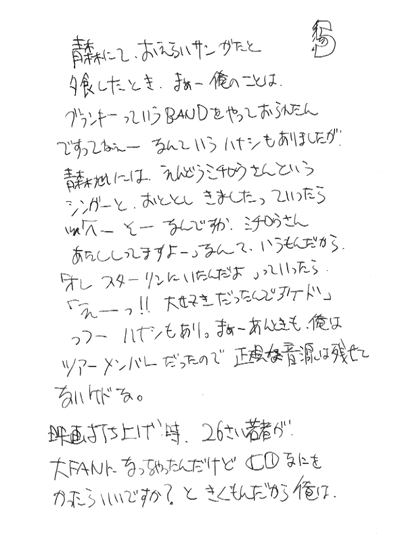 青森にて、おえらいサンがたと
夕食したとき、まぁー俺のことは、
ブランキーっていうBANDをやっておられたん
ですってねぇー なんていうハナシもありましたが
青森には、えんどうミチロウさんという
シンガーと、おととし きましたっていったら
へーそーなんですか、ミチロウさん
あたししってますよー、なんて、いうもんだから、
「オレ スターリンにいたんだよ」っていったら
「えーっ!! 大好きだったんですケド」
っつー ハナシもあり。まぁーあんときも、俺は
ツアーメンバーだったので 正規な音源は残せて
ないけどな。
映画打ち上げ時、26さい若者が
大FANになっちゃったんだけど CDなにを
かったらいいですか? と きくもんだから 俺は、